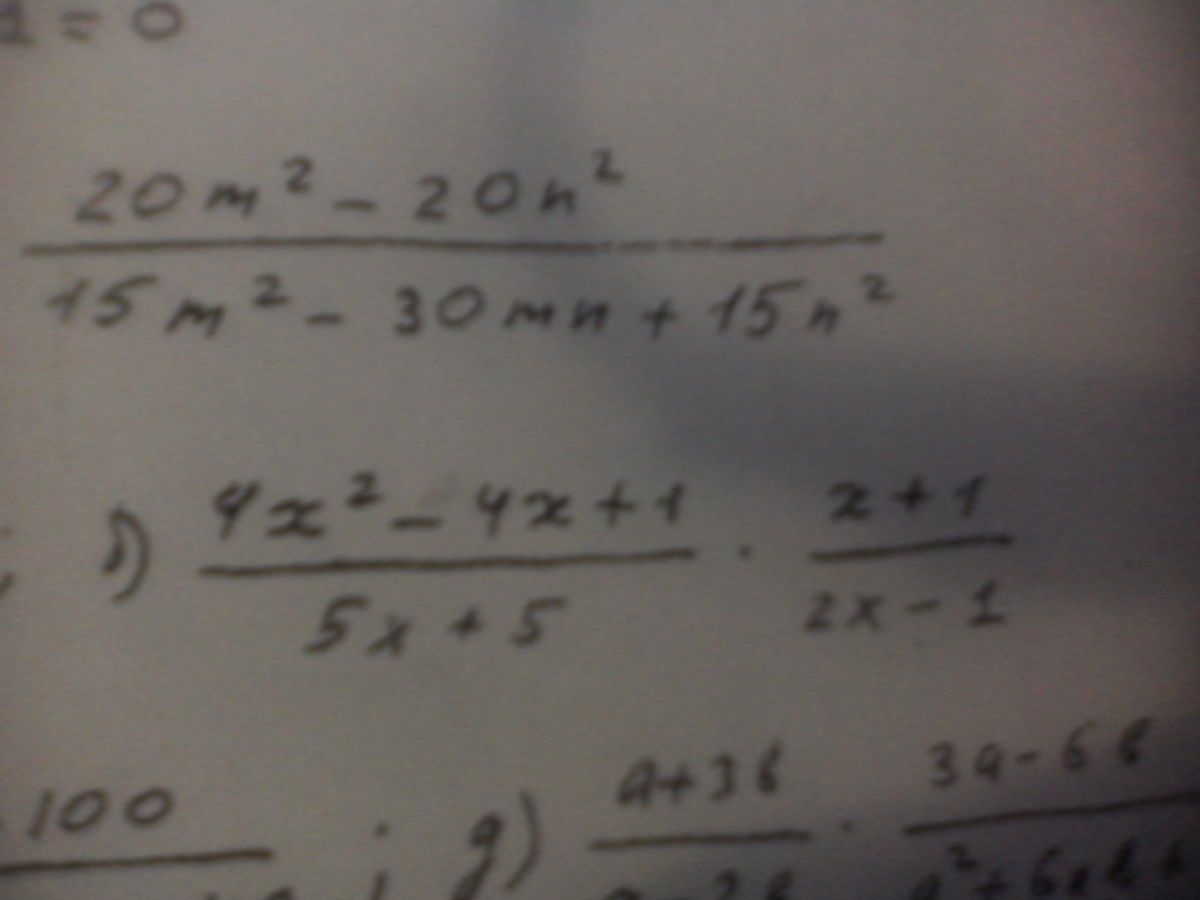 = 0
20m² - 20n²
15m² - 30mn + 15n²
; б) 4x² - 4x + 1 / 5x + 5 · x + 1 / 2x - 1
100 ; g) a + 3b · 3a - 6b